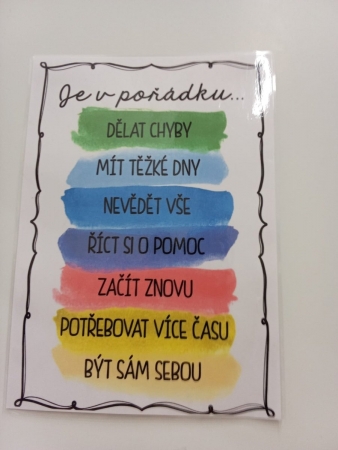 Je v pořádku...
DĚLAT CHYBY
MÍT TĚŽKÉ DNY
NEVĚDĚT VŠE
ŘÍCT SI O POMOC
ZAČÍT ZNOVU
POTŘEBOVAT VÍCE ČASU
BÝT SÁM SEBOU